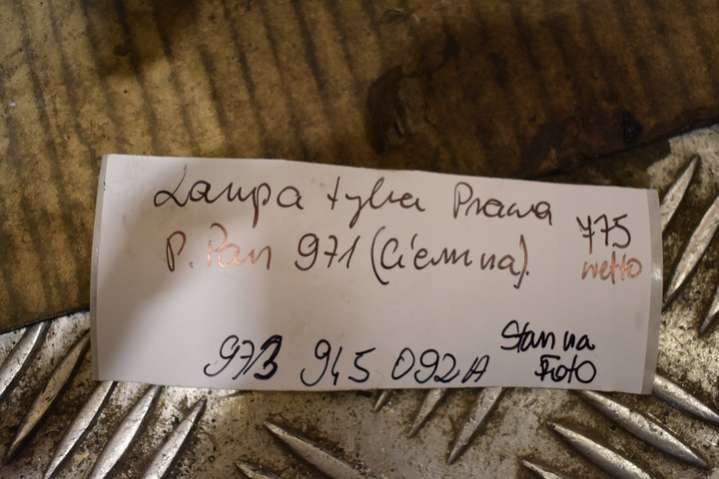 Lampa tylna Prawa
P. Pan 971 (Ciemna).
775
netto
973 945 092A
Stan na
Foto